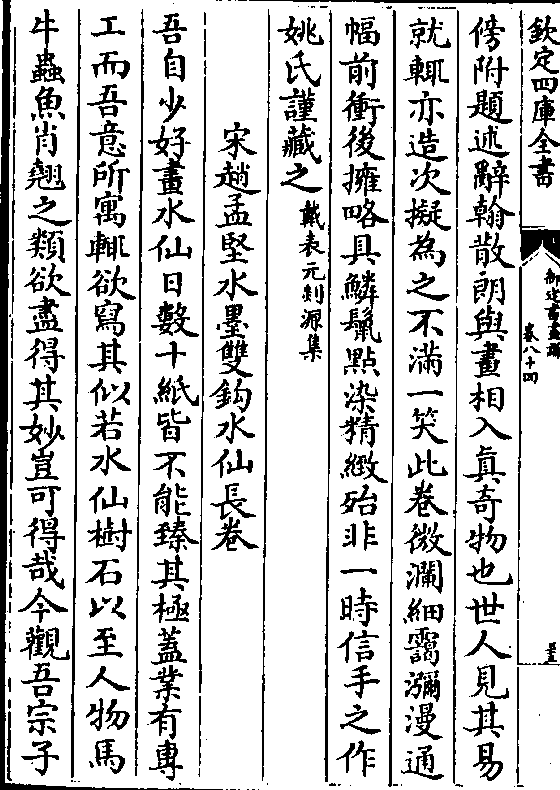 欽定四庫全書
卷八十四
傍附題述辭翰散朗與畫相入真奇物也世人見其易
就輒亦造次擬為之不滿一笑此卷微瀾細靄瀰漫通
幅前衝後擁略具鱗鬛點染精緻殆非一時信手之作
姚氏謹藏之戴表元剡源集
宋趙孟堅水墨雙鈎水仙長卷
吾自少好畫水仙日數十紙皆不能臻其極蓋業有專
工而吾意所寓輒欲寫其似若水仙樹石以至人物馬
牛蟲魚肖翹之類欲盡得其妙豈可得哉今觀吾宗子